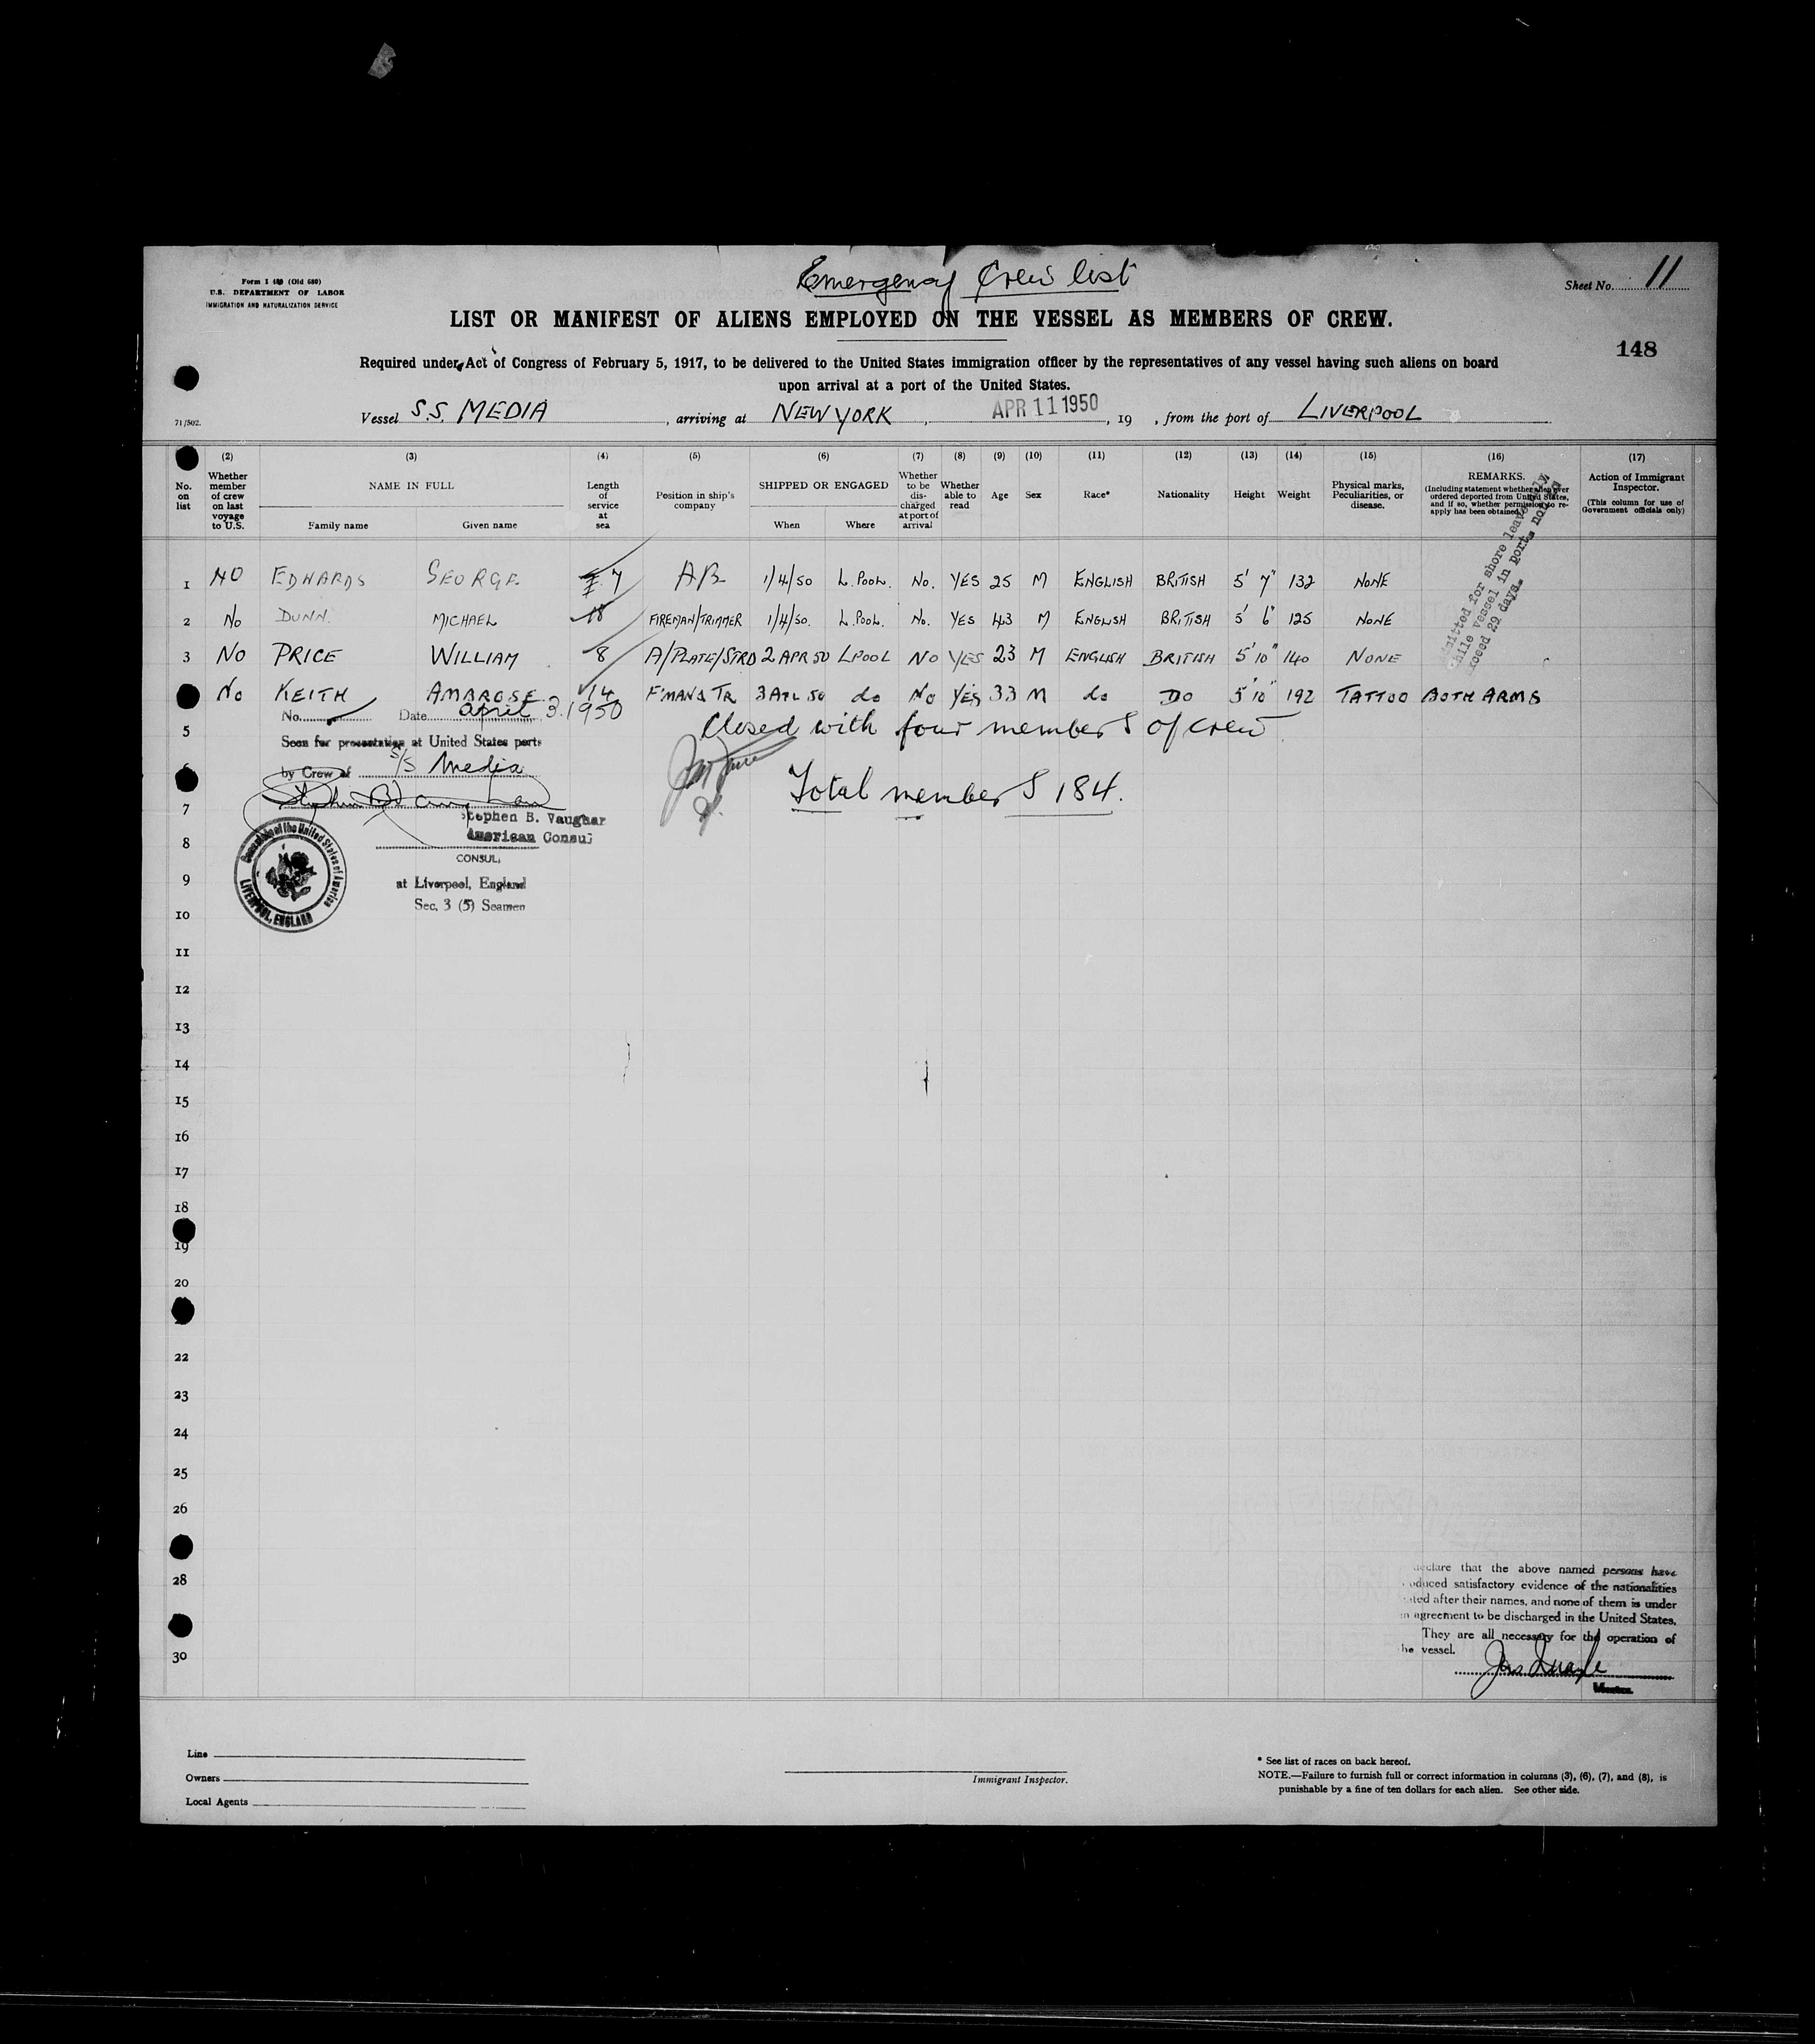 Emergency Crew list
Form I 489 (Old 680)
U.S. DEPARTMENT OF LABOR
IMMIGRATION AND NATURALIZATION SERVICE
Sheet No. 11
LIST OR MANIFEST OF ALIENS EMPLOYED ON THE VESSEL AS MEMBERS OF CREW.
148
Required under Act of Congress of February 5, 1917, to be delivered to the United States immigration officer by the representatives of any vessel having such aliens on board
upon arrival at a port of the United States.
71/502.
Vessel S.S. MEDIA, arriving at NEW YORK, APR 11 1950, 19 , from the port of LIVERPOOL
(2) (3) (4) (5) (6) (7) (8) (9) (10) (11) (12) (13) (14) (15) (16) (17)
No. on list
Whether member of crew on last voyage to U.S.
NAME IN FULL
Family name Given name
Length of service at sea
Position in ship's company
SHIPPED OR ENGAGED
When Where
Whether to be discharged at port of arrival
Whether able to read
Age
Sex
Race*
Nationality
Height
Weight
Physical marks, Peculiarities, or disease.
REMARKS.
(Including statement whether alien ever
ordered deported from United States,
and if so, whether permission to re-
apply has been obtained)
Action of Immigrant Inspector.
(This column for use of Government officials only)
1 NO EDWARDS GEORGE 7 AB 1/4/50 L.POOL. No. YES 25 M ENGLISH BRITISH 5' 7" 132 NONE
2 No DUNN. MICHAEL 18 FIREMAN/TRIMMER 1/4/50. L.POOL. No. YES 43 M ENGLISH BRITISH 5' 6" 125 NONE
3 NO PRICE WILLIAM 8 A/PLATE/STRD 2 APR 50 LPOOL NO YES 23 M ENGLISH BRITISH 5'10" 140 NONE
No KEITH AMBROSE 14 F'MAN & TR 3 APL 50 do No YES 33 M do DO 5'10" 192 TATTOO BOTH ARMS
mitted for shore leave only
hile vessel in port, not to
xceed 29 days.
No. Date April 3. 1950
Seen for presentation at United States ports
by Crew of S/S Media
Stephen B. Vaughan
American Consul
CONSUL,
at Liverpool, England
Sec. 3 (5) Seamen
Consulate of the United States of America
LIVERPOOL, ENGLAND
5 Closed with four members of crew
Total members 184.
7
8
9
10
11
12
13
14
15
16
17
18
19
20
22
23
24
25
26
28
30
declare that the above named persons have
oduced satisfactory evidence of the nationalities
ated after their names, and none of them is under
n agreement to be discharged in the United States.
They are all necessary for the operation of
he vessel.
Master.
Line
Owners
Local Agents
Immigrant Inspector.
* See list of races on back hereof.
NOTE.—Failure to furnish full or correct information in columns (3), (6), (7), and (8), is
punishable by a fine of ten dollars for each alien. See other side.